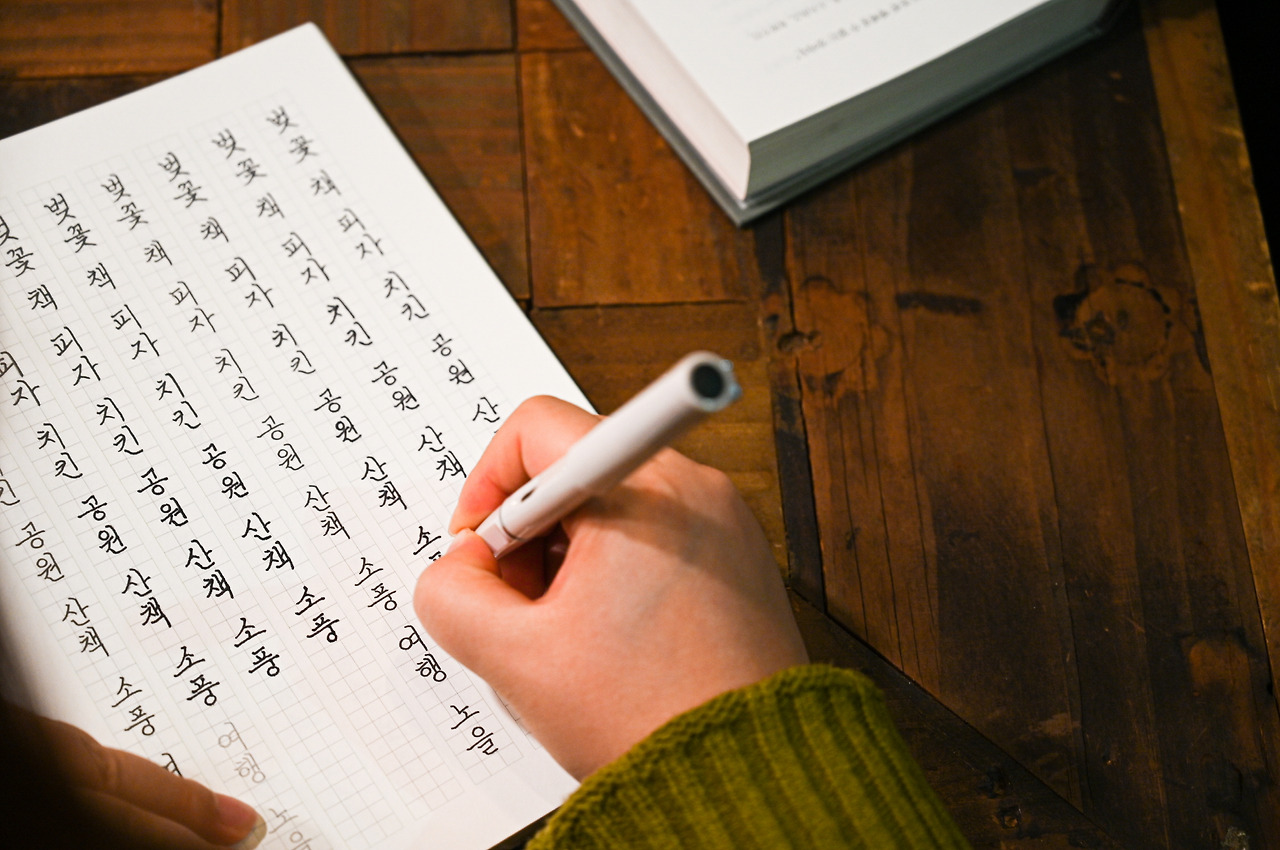 공원 산책 소풍 여
피자 치킨 공원 산책 소풍 여행 노을
벚꽃 책 피자 치킨 공원 산책 소풍
벚꽃 책 피자 치킨 공원 산책 소풍
벚꽃 책 피자 치킨 공원 산책 소풍 여행 노을
벚꽃 책 피자 치킨 공원 산책 소
벚꽃 책 피자 치킨 공원 산책
벚꽃 책 피자 치킨 공원 산